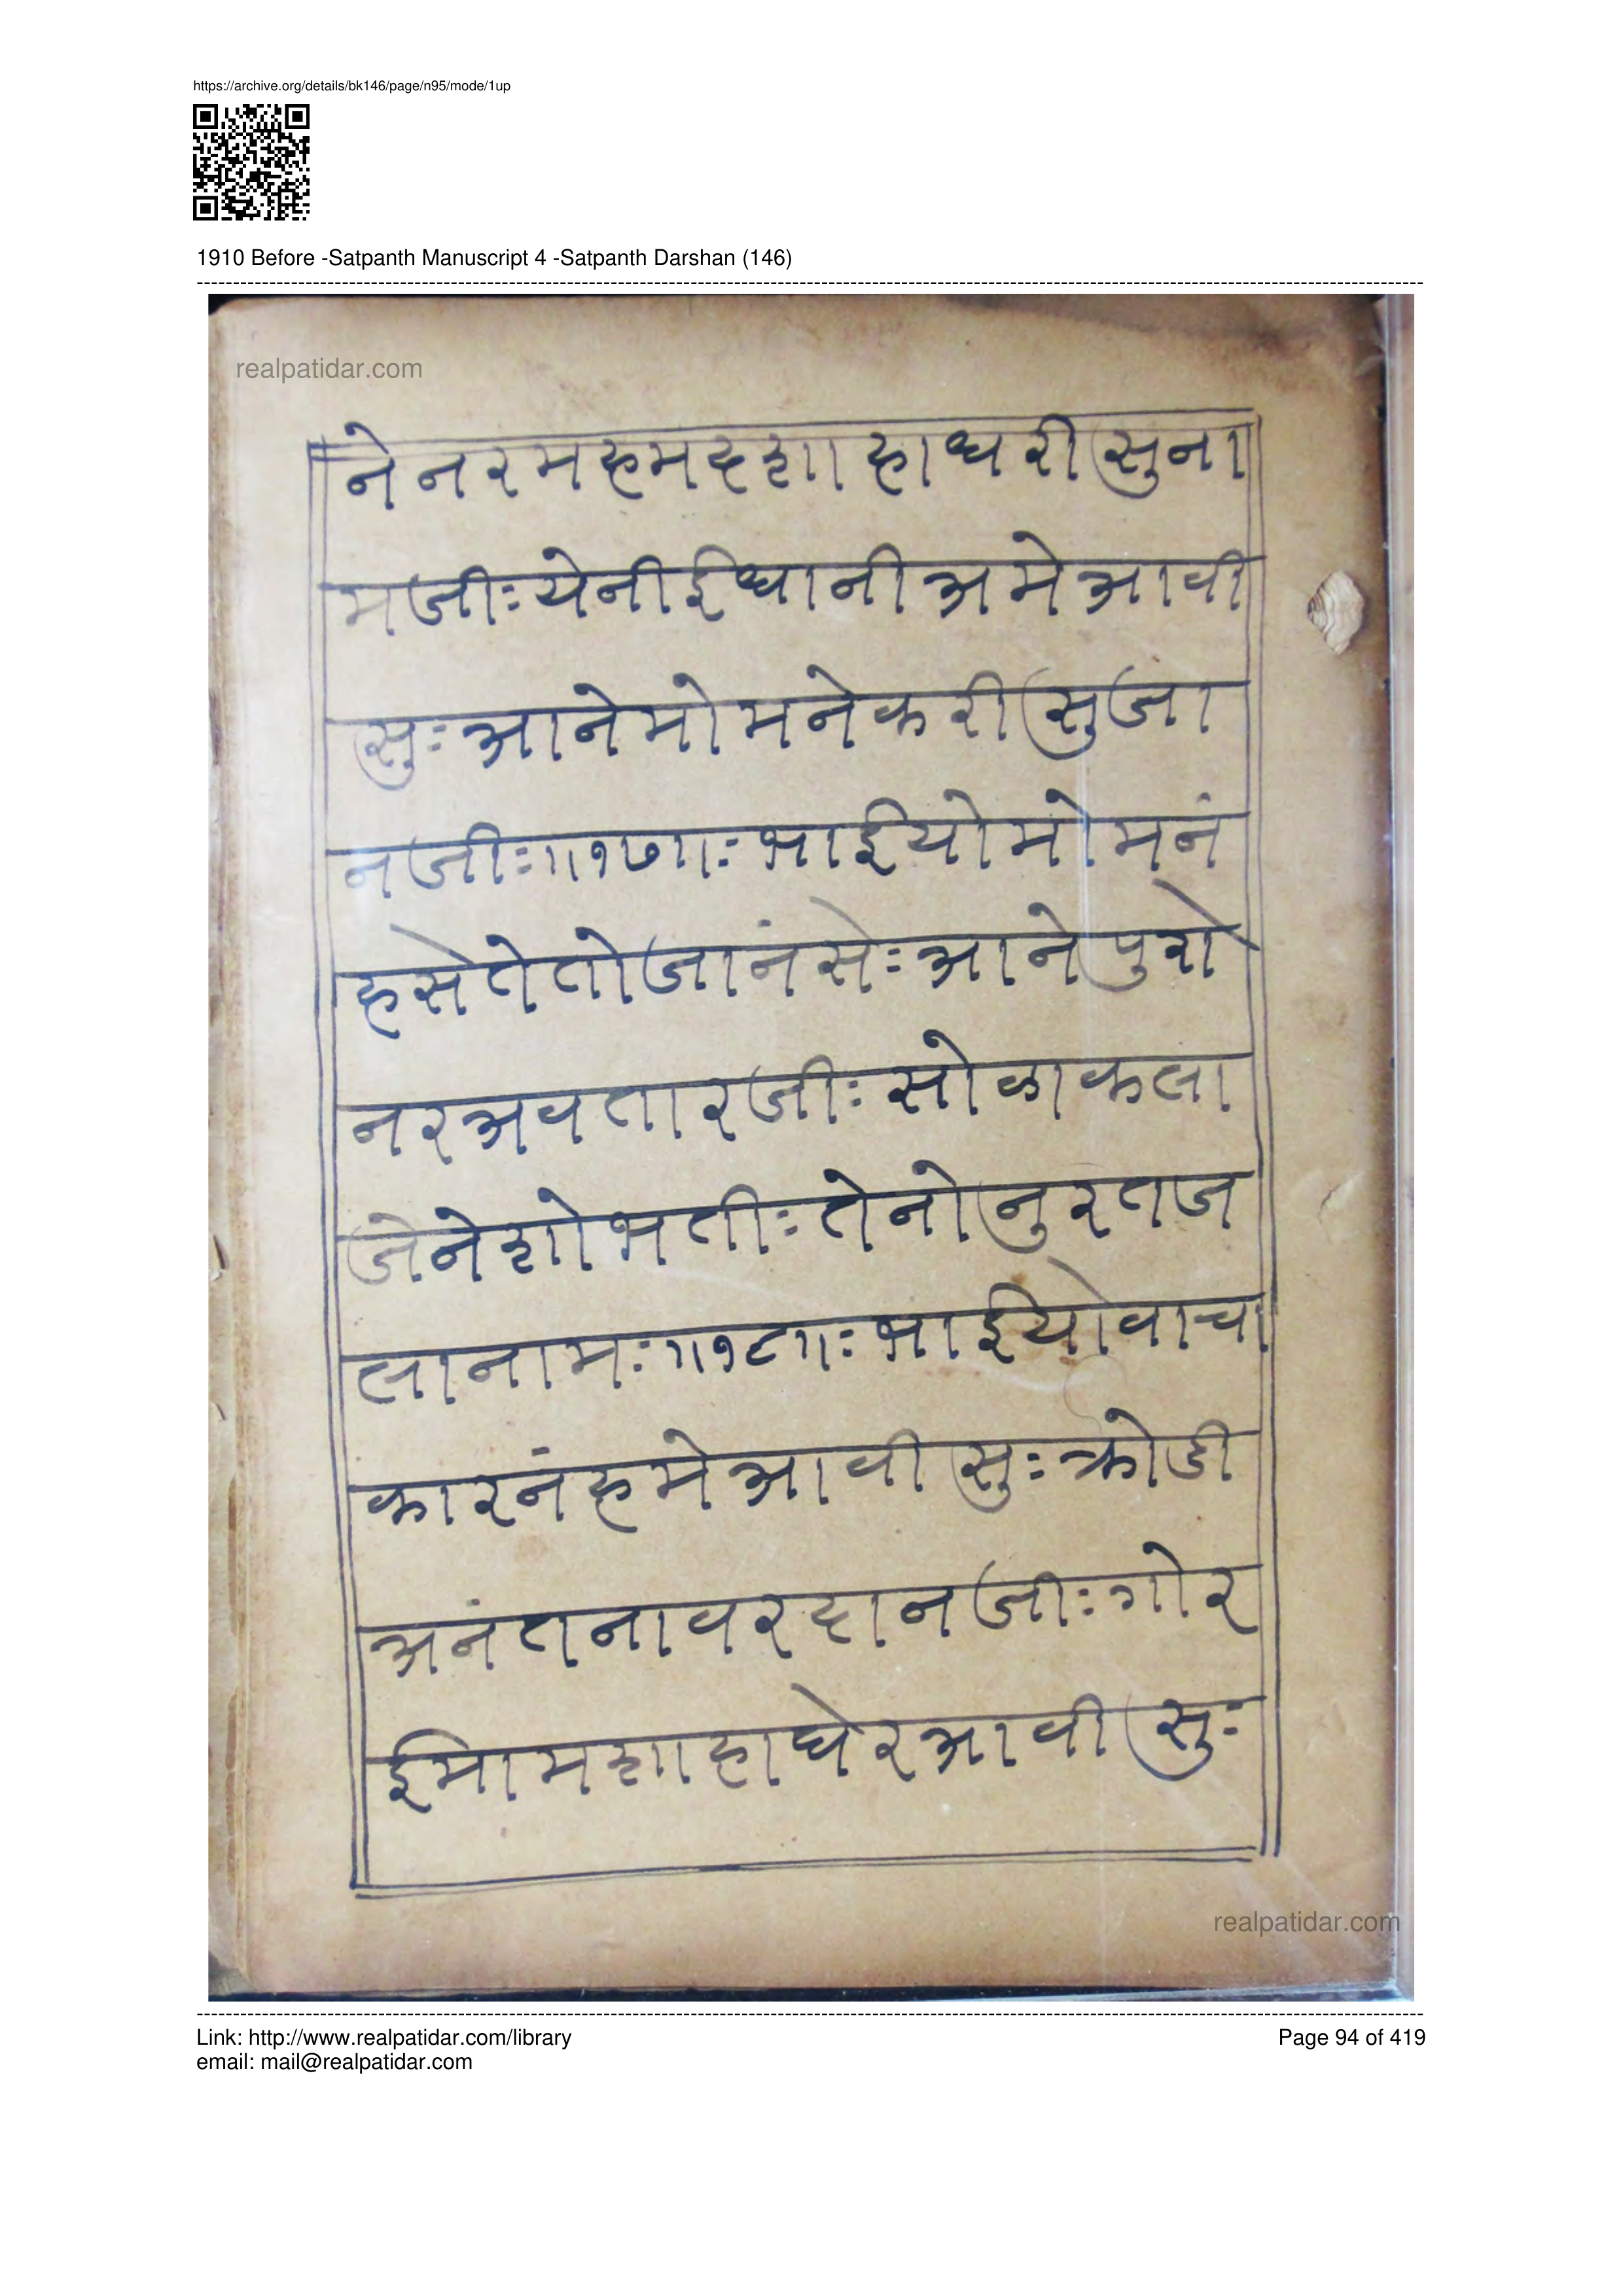 https://archive.org/details/bk146/page/n95/mode/1up
1910 Before -Satpanth Manuscript 4 -Satpanth Darshan (146)
realpatidar.com
नेनरमहमदशाहाधरीसुना
मजीःयेनीईधानीअमेआवी
सुःआनेमोमनेकरीसुजा
नजीः॥१७॥ःभाईयोमोमनं
हसेतेतोजानंसेःआनेपुरो
नरअवतारजीःसोळाकला
जेनेशोभतीःतेनोनुरतज
लानामः॥१८॥ःभाईयोवाचा
कारनंहमेआवीसुःक्रोडी
अनंतनावरदानजीःगोर
ईमामशाहाघेरआवीसुः
realpatidar.com
Link: http://www.realpatidar.com/library
Page 94 of 419
email: mail@realpatidar.com